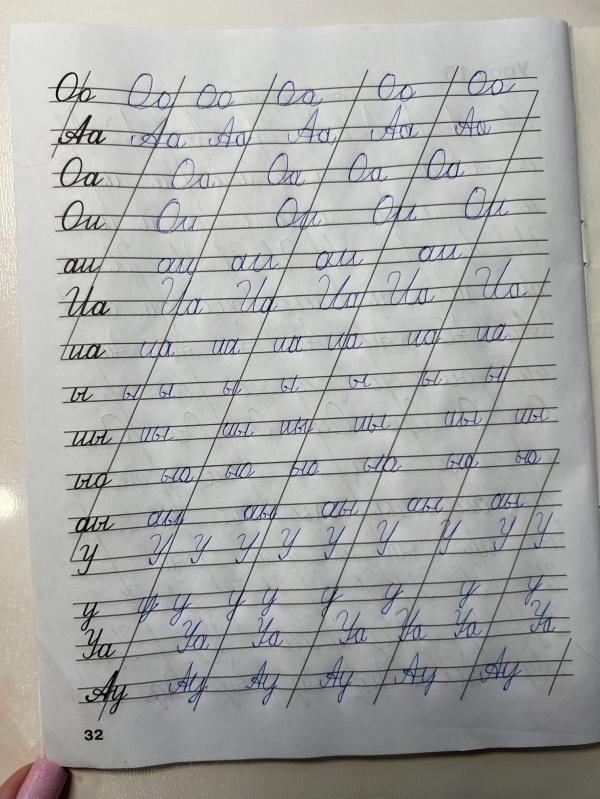 Оо Оо Оо Оо Оо Оо
Аа Аа Аа Аа Аа Аа
Оа Оа Оа Оа Оа
Ои Ои Ои Ои Ои
аи аи аи аи аи
Иа Иа Иа Иа Иа Иа
иа иа иа иа иа иа иа
ы ы ы ы ы ы ы ы
иы иы иы иы иы иы иы
ыо ыо ыо ыо ыо ыо ыо
аы аы аы аы аы аы
У У У У У У У У У
у у у у у у у у у
Уа Уа Уа Уа Уа Уа Уа
Ау Ау Ау Ау Ау Ау
32